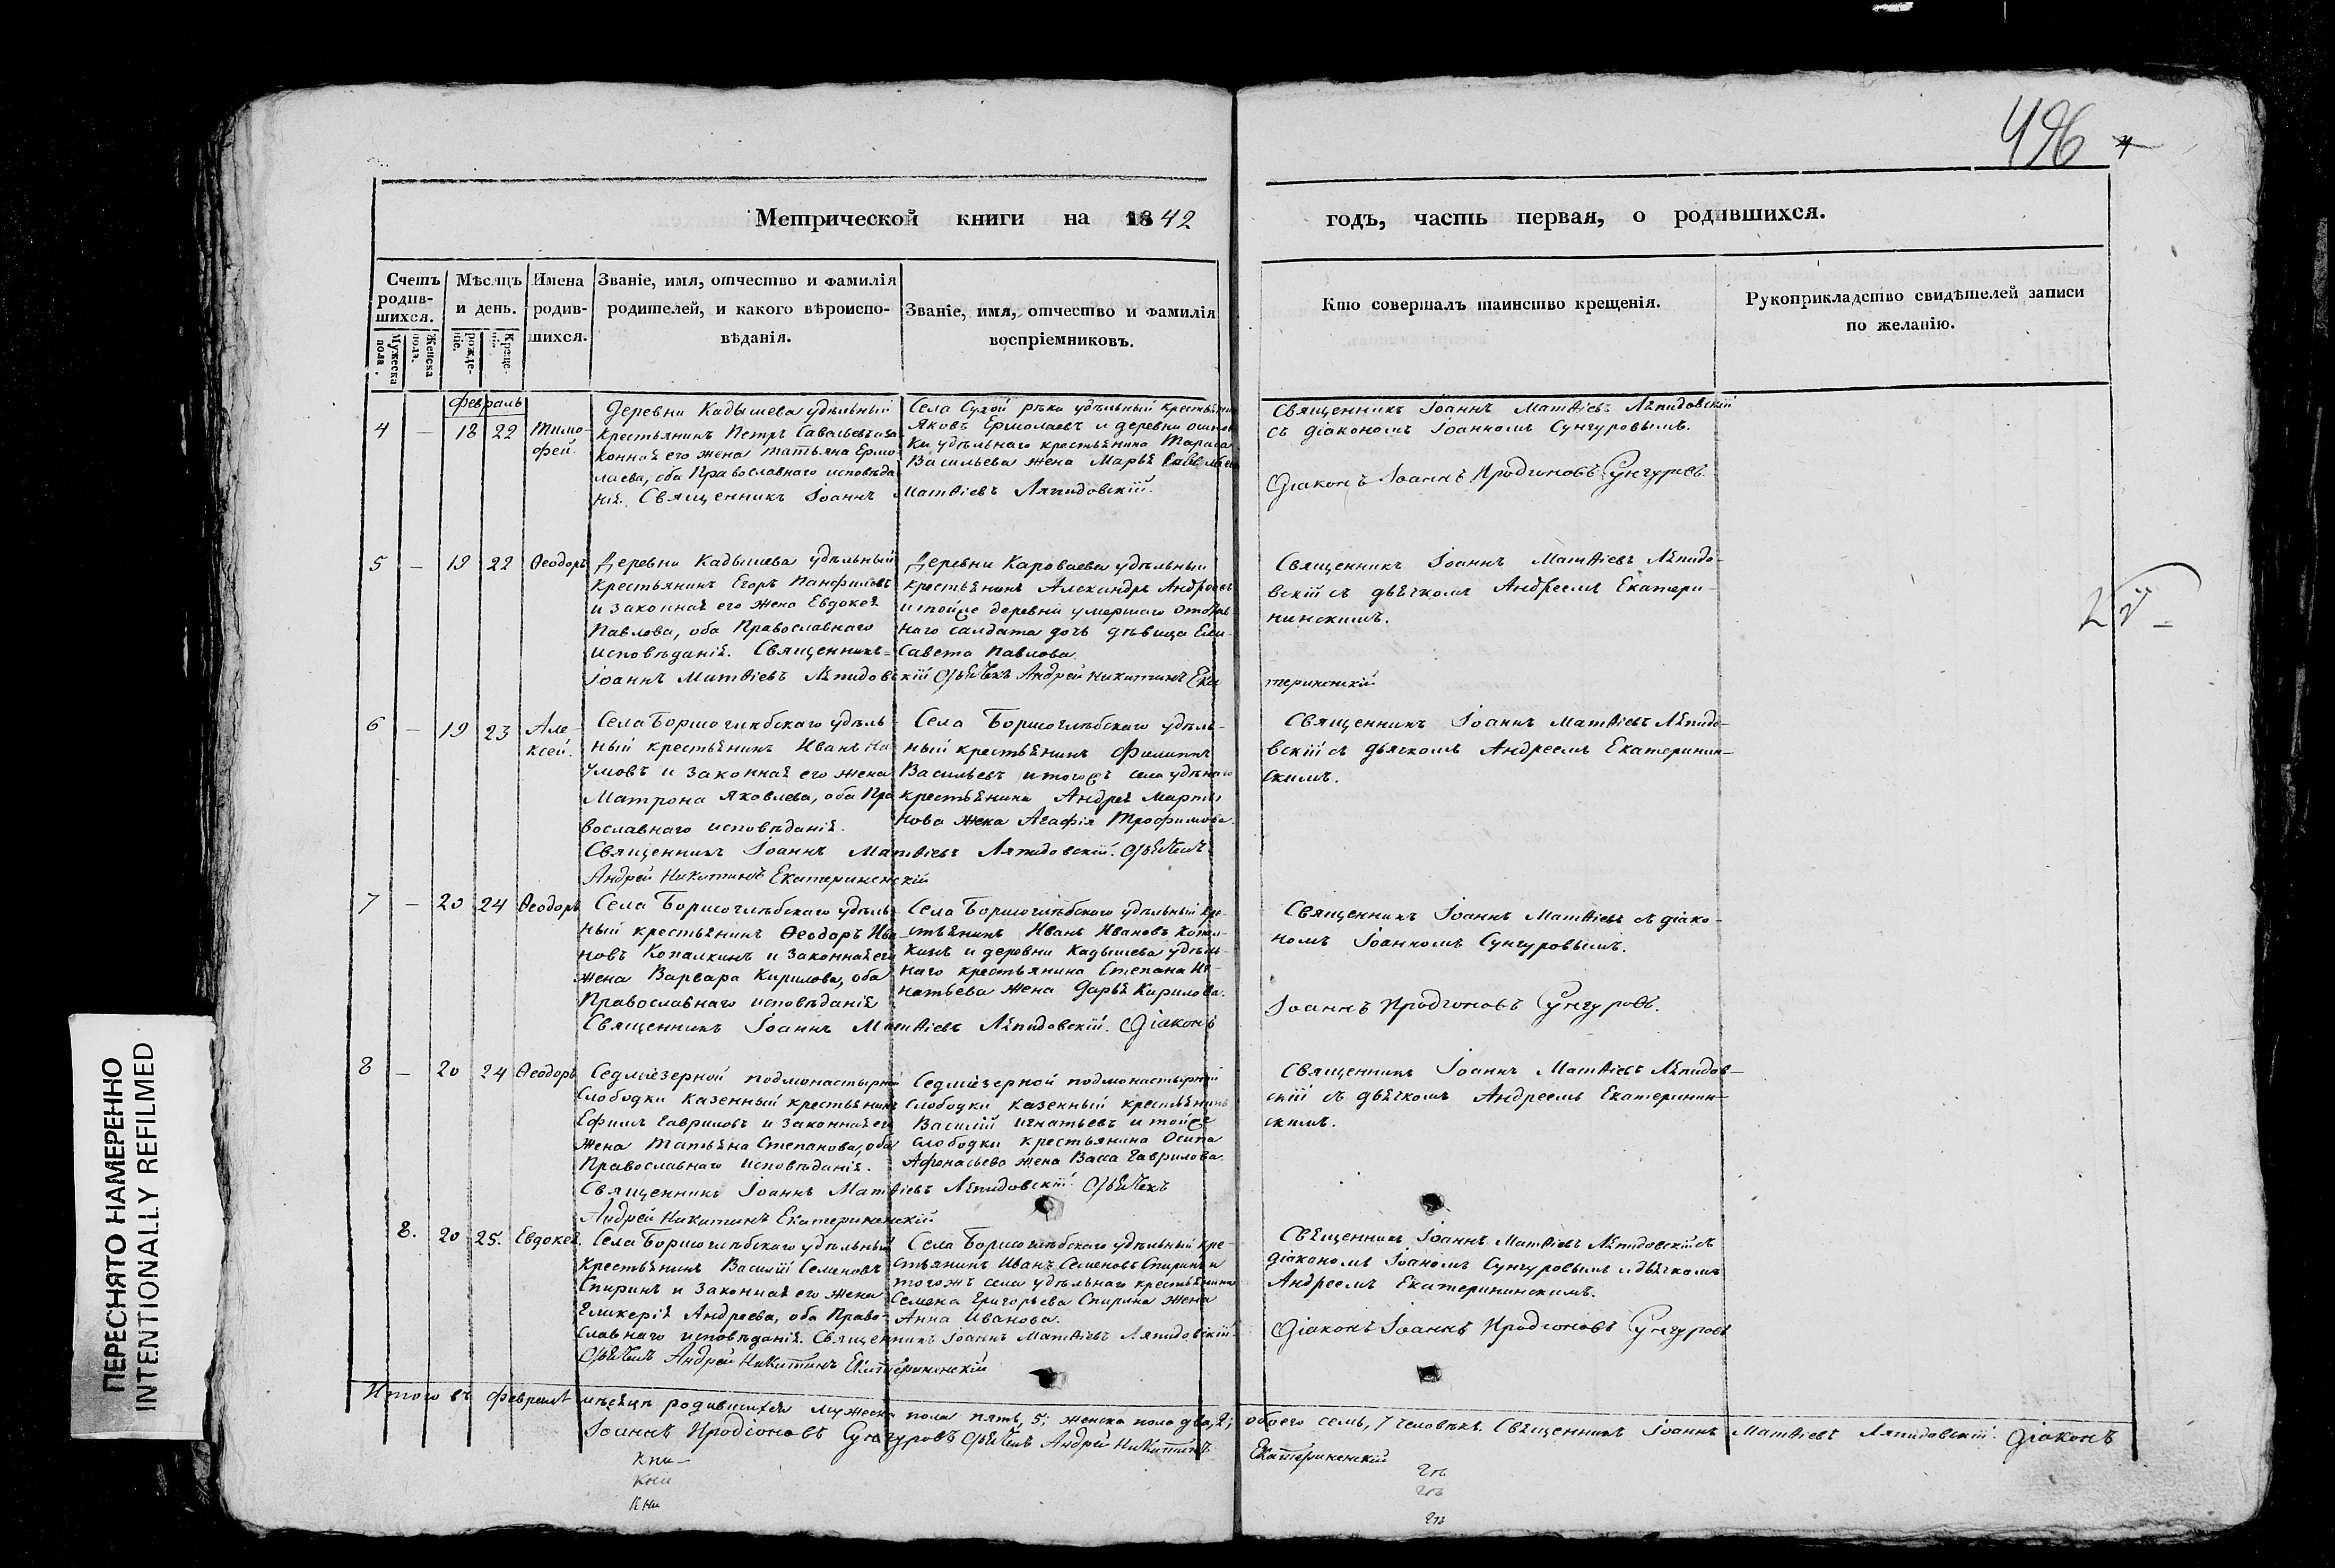 496
Метрической книги на 1842
годъ, часть первая, о родившихся.
Счетъ родив-шихся.
Мужеска пола.
Женска пола.
Мѣсяцъ и день.
рожде-нiе.
Креще-нiя.
Имена родив-шихся.
Званiе, имя, отчество и фамилiя
родителей, и какого вѣроиспо-
вѣданiя.
Званiе, имя, отчество и фамилiя
воспрiемниковъ.
Кто совершалъ таинство крещенiя.
Рукоприкладство свидѣтелей записи
по желанiю.
Февраль
4 — 18 22 Тимо-
фей.
Деревни Кадышева удѣльный
крестьянинъ Петръ Савельевъ и за-
конная его жена Татьяна Ермо-
лаева, оба Православнаго исповѣда
нiя. Священникъ Iоаннъ Матѳiевъ Ляпидовскiй.
Села Сухой рѣки удѣльный крестьянинъ
Яковъ Ермолаевъ и деревни
ки удѣльнаго крестьянина Тараса
Васильева жена Марья
Священникъ Iоаннъ Матѳiевъ Ляпидовскiй
съ дiакономъ Iоанномъ Сунгуровымъ.
Дiаконъ Iоаннъ Иродiоновъ Сунгуровъ.
5 — 19 22 Ѳеодоръ
Деревни Кадышева удѣльный
крестьянинъ Егоръ Панфиловъ
и законная его жена Евдокея
Павлова, оба Православнаго
исповѣданiя. Священникъ
Iоаннъ Матѳiевъ Ляпидовскiй Дьячекъ Андрей Никитинъ Ека
Деревни Караваева удѣльный
крестьянинъ Александръ Андреевъ
и тойже деревни умершаго отстав
наго салдата дочь дѣвица Ели-
савета Павлова.
Священникъ Iоаннъ Матѳiевъ Ляпидо-
вскiй съ дьячкомъ Андреемъ Екатери-
нинскимъ.
терининскiй
6 — 19 23 Але-
ксей.
Села Борисоглѣбскаго удѣль-
ный крестьянинъ Иванъ На-
умовъ и законная его жена
Матрона Яковлева, оба Пра
вославнаго исповѣданiя.
Священникъ Iоаннъ Матѳiевъ Ляпидовскiй. Дьячекъ
Андрей Никитинъ Екатерининскiй
Села Борисоглѣбскаго удѣль-
ный крестьянинъ Филиппъ
Васильевъ и тогожъ села удѣльнаго
крестьянина Андрея Марты
нова жена Агафiя Трофимова.
Священникъ Iоаннъ Матѳiевъ Ляпидо-
вскiй съ дьячкомъ Андреемъ Екатеринин-
скимъ.
7 — 20 24 Ѳеодоръ
Села Борисоглѣбскаго удѣль-
ный крестьянинъ Ѳеодоръ Ива
новъ Копалкинъ и законная его
жена Варвара Кирилова, оба
Православнаго исповѣданiя
Священникъ Iоаннъ Матѳiевъ Ляпидовскiй. Дiаконъ
Села Борисоглѣбскаго удѣльный кре-
стьянинъ Иванъ Ивановъ Копал-
кинъ и деревни Кадышева удѣль-
наго крестьянина Степана Иг-
натьева жена Дарья Кирилова.
Священникъ Iоаннъ Матѳiевъ съ дiако-
номъ Iоанномъ Сунгуровымъ.
Iоаннъ Иродiоновъ Сунгуровъ.
8 — 20 24 Ѳеодоръ
Седмiезерной подмонастырной
Слободки казенный крестьянинъ
Ефимъ Гавриловъ и законная его
жена Татьяна Степанова, оба
Православнаго исповѣданiя.
Священникъ Iоаннъ Матѳiевъ Ляпидовскiй Дьячекъ
Андрей Никитинъ Екатерининскiй
Седмiезерной подмонастырной
слободки казенный крестьянинъ
Василiй Игнатьевъ и тойже
слободки крестьянина Осипа
Афонасьева жена Васса Гаврилова.
Священникъ Iоаннъ Матѳiевъ Ляпидов-
скiй съ дьячкомъ Андреемъ Екатеринин-
скимъ.
8. 20 25. Евдокея.
Села Борисоглѣбскаго удѣльный
крестьянинъ Василiй Семеновъ
Спиринъ и законная его жена
Гликерiя Андреева, оба Право-
славнаго исповѣданiя. Священникъ Iоаннъ Матѳiевъ Ляпидовскiй.
Дьячекъ Андрей Никитинъ Екатерининскiй
Села Борисоглѣбскаго удѣльный кре-
стьянинъ Иванъ Семеновъ Спиринъ и
тогожъ села удѣльнаго крестьянина
Семена Григорьева Спирина жена
Анна Иванова.
Священникъ Iоаннъ Матѳiевъ Ляпидовскiй съ
дiакономъ Iоаномъ Сунгуровымъ и дьячкомъ
Андреемъ Екатерининскимъ.
Дiаконъ Iоаннъ Иродiоновъ Сунгуровъ
Итого въ Февралѣ мѣсяцѣ родившихся мужеска пола пять, 5; женска пола два, 2; обоего семь, 7 человѣкъ. Священникъ Iоаннъ Матѳiевъ Ляпидовскiй. Дiаконъ
Iоаннъ Иродiоновъ Сунгуровъ Дьячекъ Андрей Никитинъ Екатерининскiй
Кни-
Кни
Кни
ПЕРЕСНЯТО НАМЕРЕННО
INTENTIONALLY REFILMED